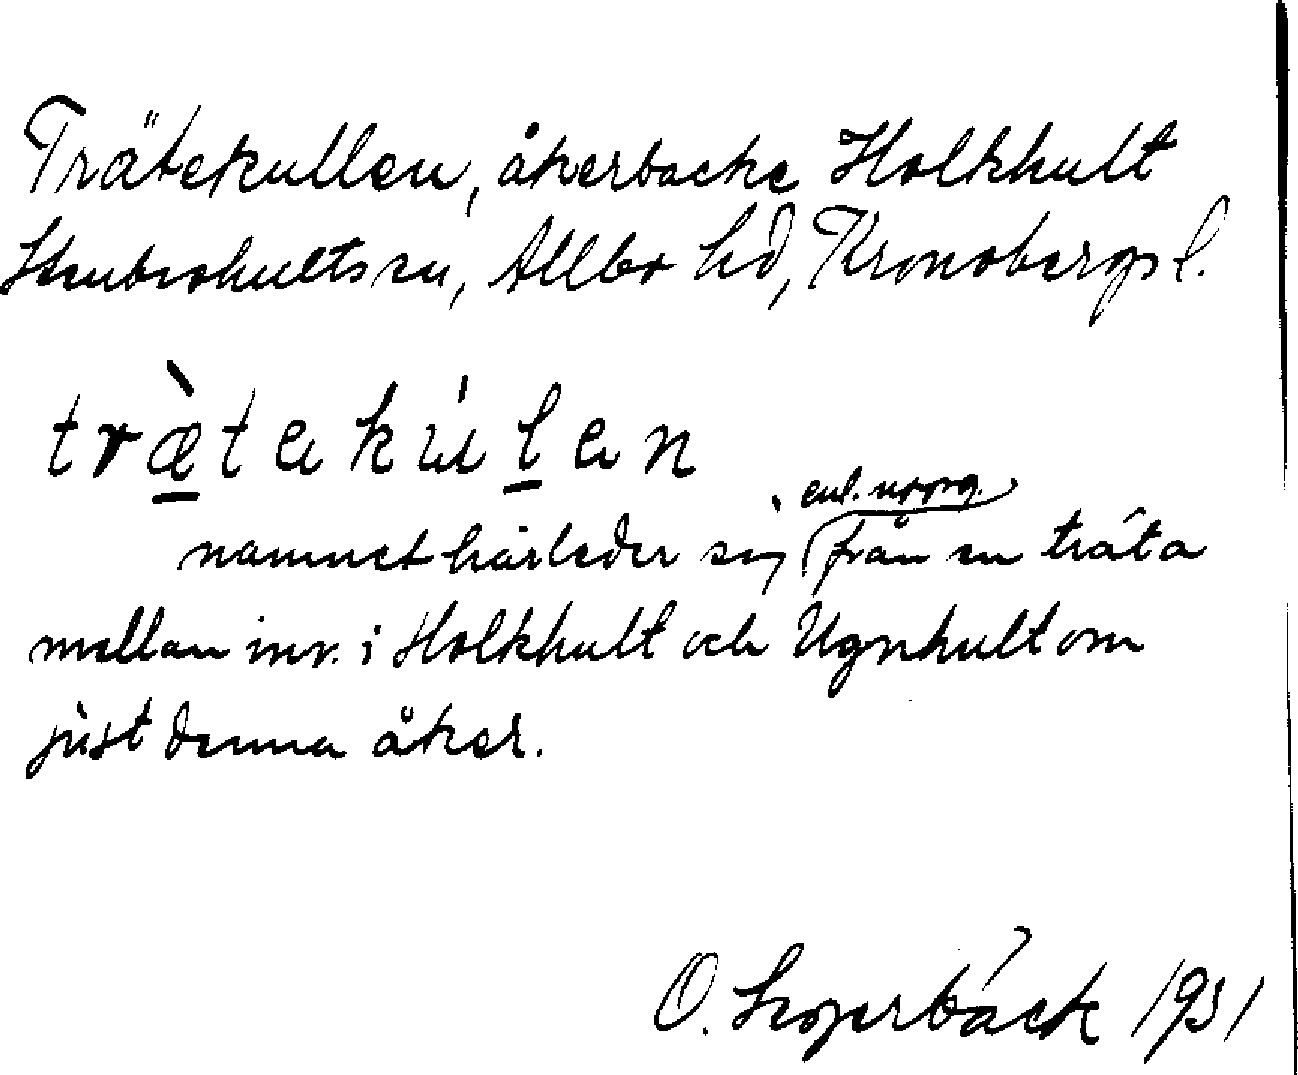 Trätekullen, åkerbacke Holkhult
Stenbrohults sn, Allbo hd, Kronobergs l.
træ̀tekúlen
namnet härleder sig enl. uppg. från en träta
mellan inv. i Holkhult och Ugnhult om
just denna åker.
O. 1931